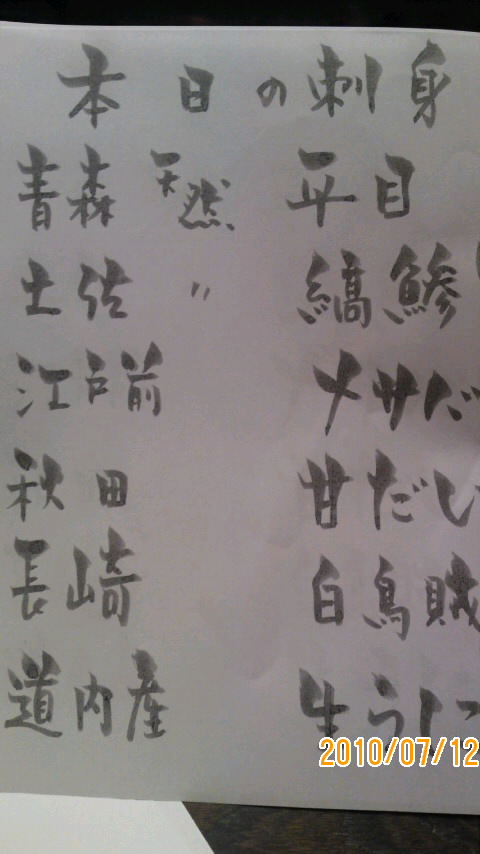 本日の刺身
青森 天然 平目
土佐 〃 縞鯵
江戸前 メサだ
秋田 甘だし
長崎 白烏賊
道内産 生うに
2010/07/12